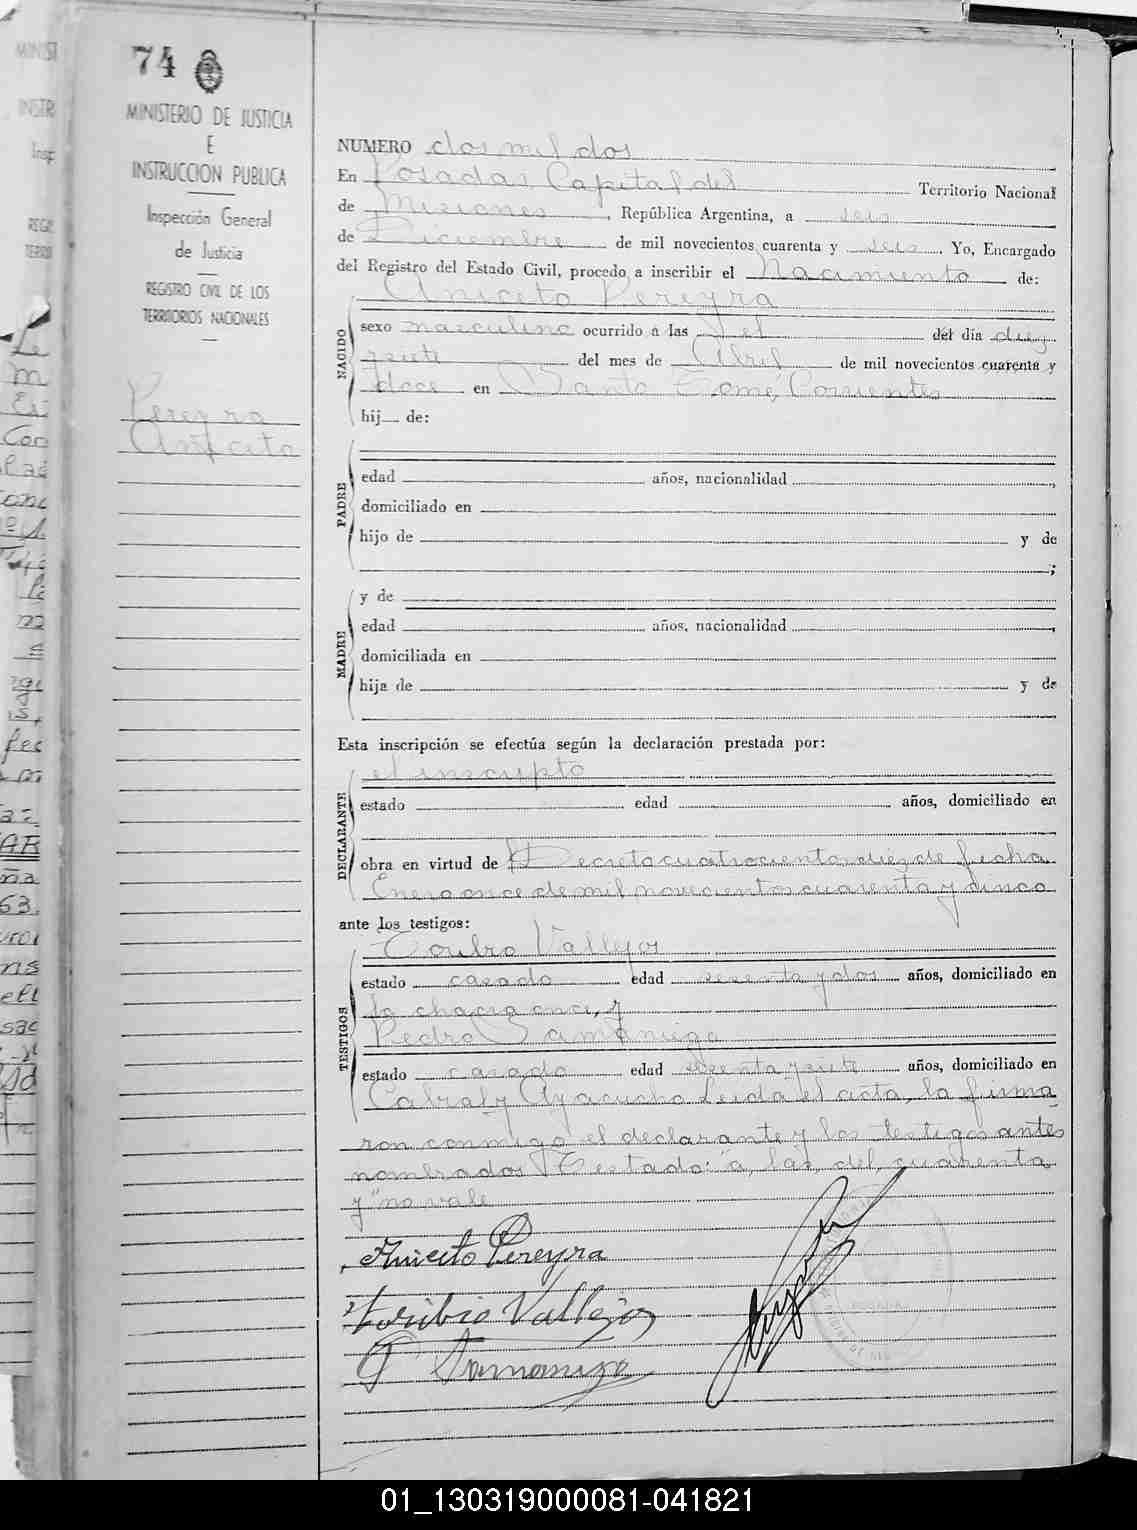 74
MINISTERIO DE JUSTICIA
E
INSTRUCCION PUBLICA
Inspección General
de Justicia
REGISTRO CIVIL DE LOS
TERRITORIOS NACIONALES
Pereyra
Aniceto
NUMERO dos mil dos
En Posadas Capital del Territorio Nacional
de Misiones, República Argentina, a seis
de Diciembre de mil novecientos cuarenta y seis. Yo, Encargado
del Registro del Estado Civil, procedo a inscribir el Nacimiento de:
Aniceto Pereyra
NACIDO
sexo masculino ocurrido a las del día diez
y siete del mes de Abril de mil novecientos cuarenta y
doce en Santo Tomé, Corrientes
hij de:
PADRE
edad años, nacionalidad ,
domiciliado en
hijo de y de
;
MADRE
y de
edad años, nacionalidad ,
domiciliada en
hija de y de
Esta inscripción se efectúa según la declaración prestada por:
el inscripto
DECLARANTE
estado edad años, domiciliado en
obra en virtud de Decreto cuatrocientos diez de fecha
Enero once de mil novecientos cuarenta y cinco
ante los testigos:
Toribio Vallejos
TESTIGOS
estado casado edad sesenta y dos años, domiciliado en
la chacra once, y
Pedro Samaniego
estado casado edad y siete años, domiciliado en
Cabral y Ayacucho Leida el acta, la firma
ron conmigo el declarante y los testigos antes
nombrados Testado: "a, las, del, cuarenta
y" no vale
Aniceto Pereyra
Toribio Vallejos
P Samaniego
01_130319000081-041821